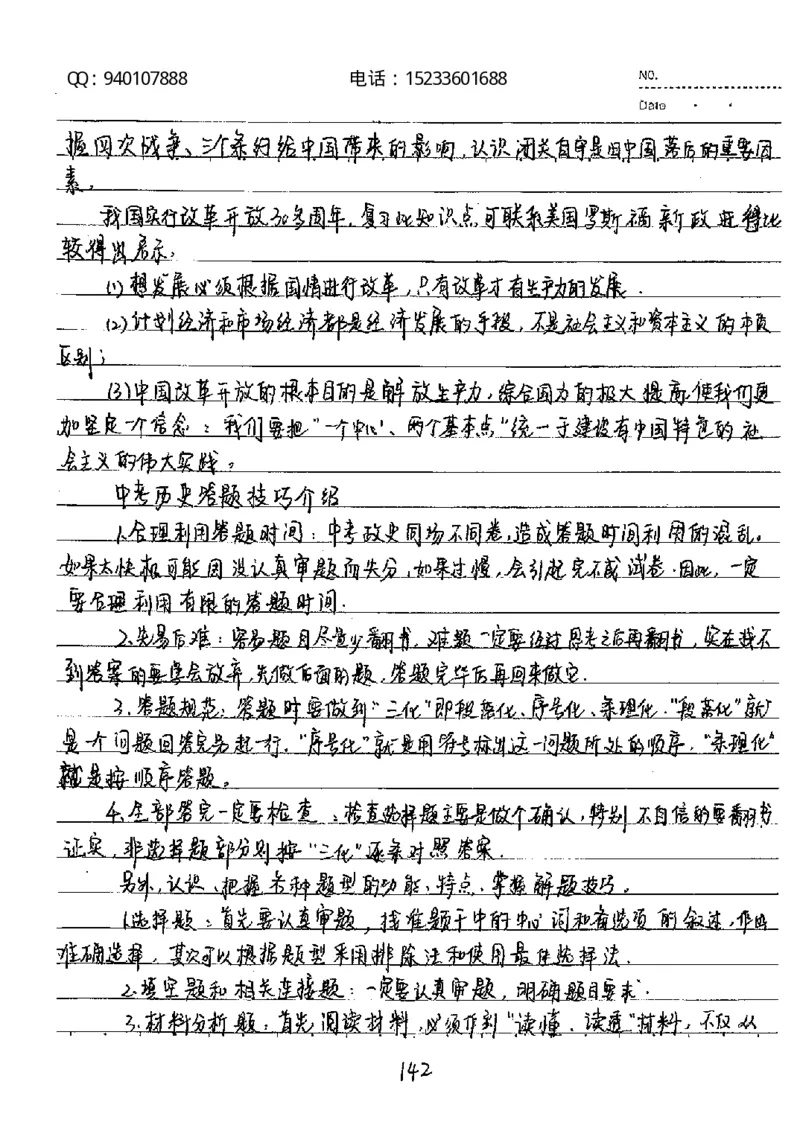 QQ：940107888 电话：15233601688 NO.
Date
握四次战争、三个条约给中国带来的影响，认识闭关自守是旧中国落后的重要因
素。
我国实行改革开放30多周年，复习此知识点，可联系美国罗斯福新政进行比
较得出启示。
(1)想发展必须根据国情进行改革，只有改革才有生产力的发展．
(2)计划经济和市场经济都是经济发展的手段，不是社会主义和资本主义的本质
区别；
(3)中国改革开放的根本目的是解放生产力，综合国力的极大提高，使我们更
加坚定一个信念：我们要把“一个中心、两个基本点”统一于建设有中国特色的社
会主义的伟大实践。
中考历史答题技巧介绍
1.合理利用答题时间：中考政史同场不同卷，造成答题时间利用的混乱。
如果太快极可能因没认真审题而失分，如果过慢，会引起完不成试卷．因此，一定
要合理利用有限的答题时间．
2.先易后难：容易题目尽量少翻书，难题一定要经过思考之后再翻书，实在找不
到答案的要学会放弃，先做后面的题，答题完毕后再回来做它．
3.答题规范：答题时要做到“三化”即段落化、序号化、条理化．“段落化”就
是一个问题回答完另起一行．“序号化”就是用符号标出这一问题所处的顺序．“条理化”
就是按顺序答题。
4.全部答完一定要检查：检查选择题主要是做个确认，特别不自信的要翻书
证实，非选择题部分则按“三化”逐条对照答案．
另外，认识、把握各种题型的功能、特点、掌握解题技巧。
1.选择题：首先要认真审题，找准题干中的中心词和备选项的叙述，作出
准确选择，其次可以根据题型采用排除法和使用最佳选择法．
2.填空题和相关连接题：一定要认真审题，明确题目要求．
3.材料分析题：首先阅读材料，必须作到“读懂．读透”材料，不仅从
142